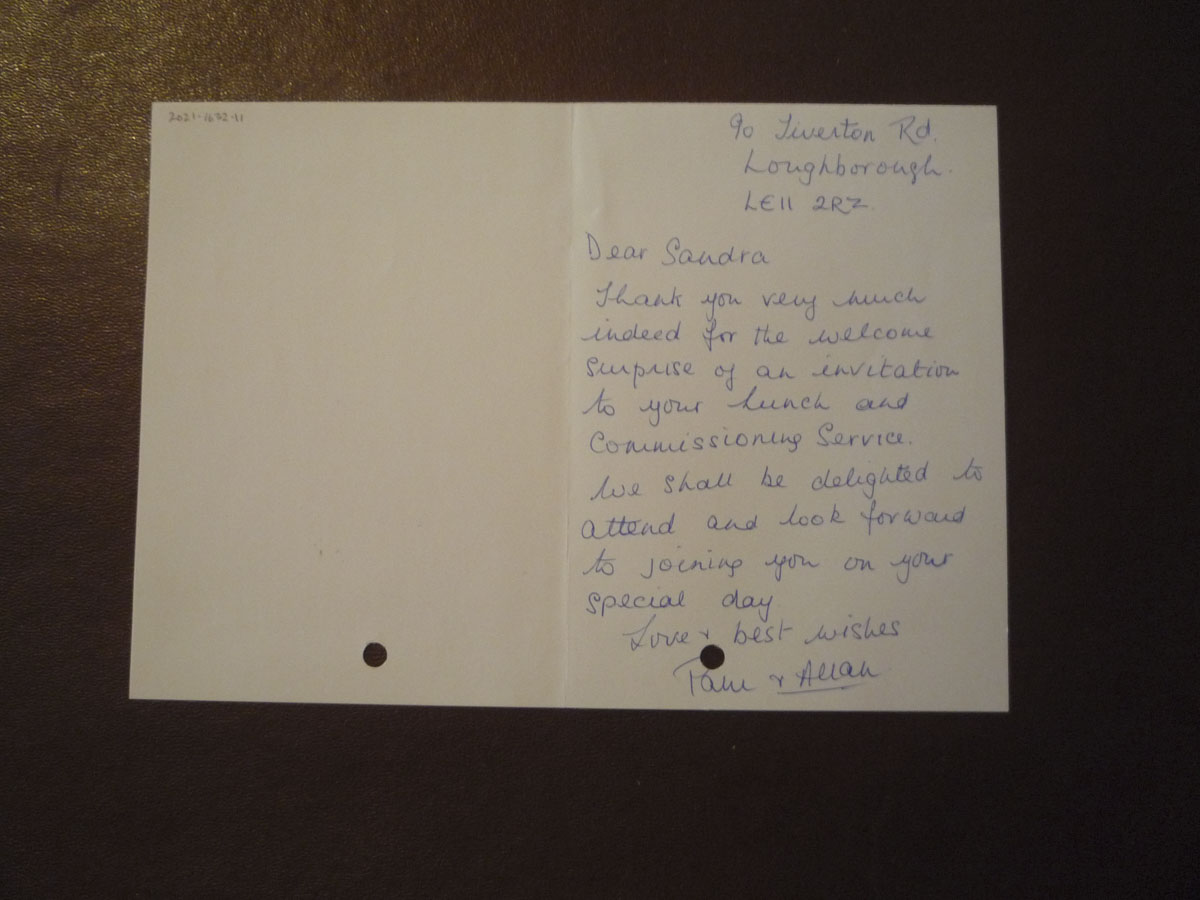 2021-1672-11
90 Tiverton Rd.
Loughborough.
LE11 2RZ.
Dear Sandra
Thank you very much
indeed for the welcome
surprise of an invitation
to your lunch and
Commissioning Service.
We shall be delighted to
attend and look forward
to joining you on your
special day
Love + best wishes
Pam + Allan